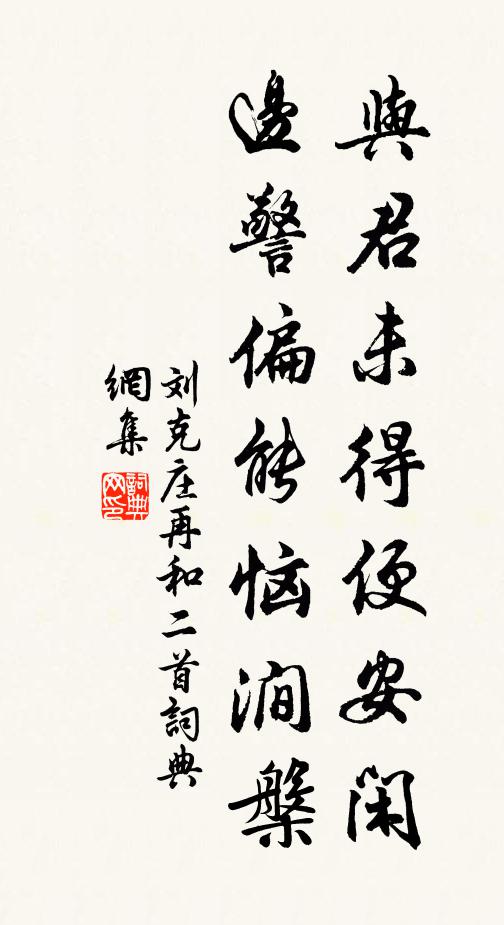 與君未得便安閑
邊警偏能恼澗槃
刘克庄再和二首詞典
網集
詞典
网印